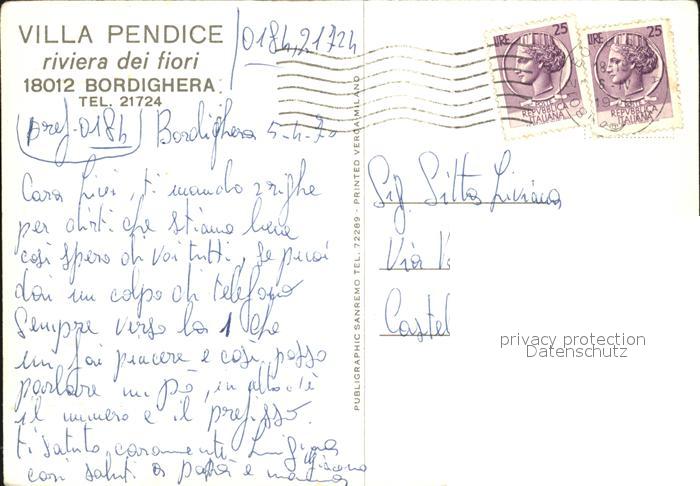 VILLA PENDICE
riviera dei fiori
18012 BORDIGHERA
TEL. 21724
0184,21724
(pref. 0184) Bordighera 5-4-70
Cara Livi, ti mando 2 righe
per dirti che stiamo bene
così spero di voi tutti, se puoi
dai un colpo di telefono
sempre verso la 1 che
mi fai piacere e così posso
parlare un pò, in alto c'è
il numero e il prefisso.
ti saluto caramente Luigina
cari saluti a papà e mamma
LIRE 25
REPUBBLICA
ITALIANA
LIRE 25
REPUBBLICA
ITALIANA
Sig. Sitta Liviana
Via V.
Castel
PUBLIGRAPHIC SANREMO TEL. 72289 - PRINTED VERGA MILANO
privacy protection
Datenschutz